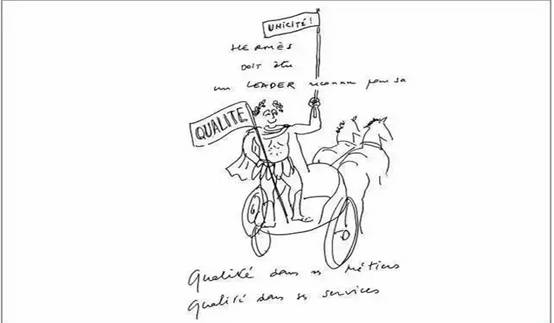 UNICITÉ!
HERMÈS
DOIT être
un LEADER reconnu pour sa
QUALITE
Qualité dans ses métiers
Qualité dans ses services